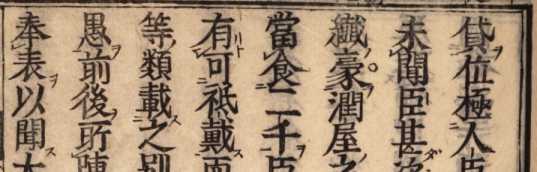 貸位極人臣
未聞臣甚
纎豪潤屋之
當食二千臣
有可祇戴而
等類載之別
愚前後所陳
奉表以聞大